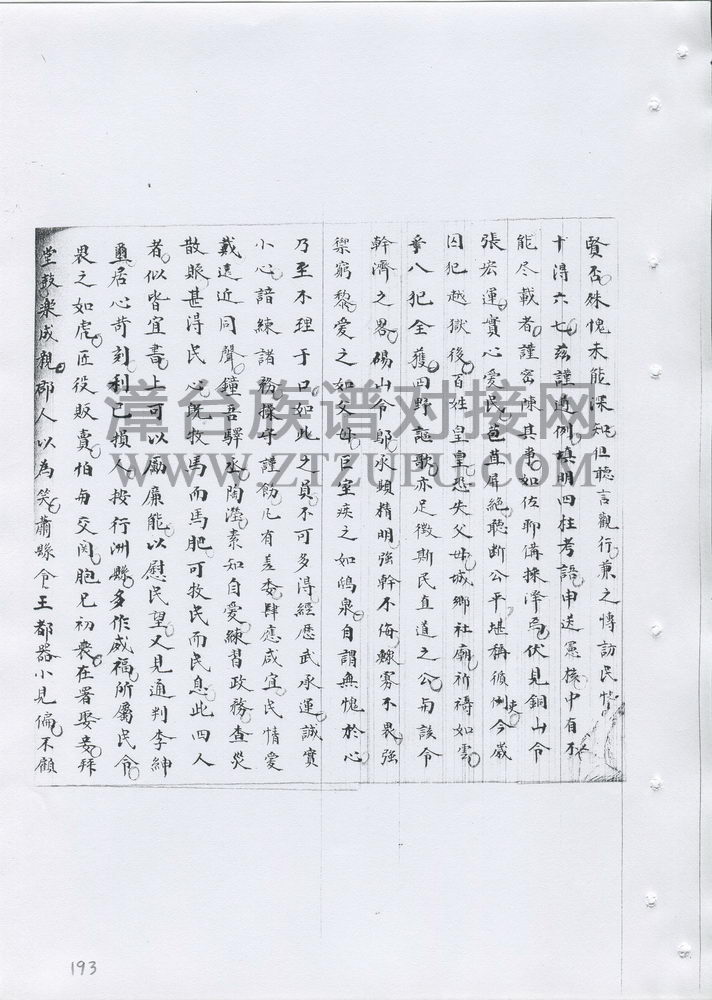 賢否殊愧未能深知但聽言觀行兼之博訪民情
十得六七茲謹遵例填明四柱考語申送憲核中有不
能尽載者謹密陳其事如左聊備採澤焉伏見銅山令
張宏運實心愛民苞苴屏絕聽断公平堪稱循吏今歲
囚犯越獄後百姓皇皇恐失父母城鄉社廟祈禱如雲
乎八犯全獲四野謳歌亦足徵斯民直道之公与該令
幹濟之畧碭山令鄔承顯精明強幹不侮鰥寡不畏強
禦窮黎愛之如父母巨室疾之如鴟梟自謂無愧於心
乃至不理于口如此之員不可多得經歷武承運誠實
小心諳練諸務操守謹飭凡有差委肆應咸宜民情愛
戴遠近同聲鐘吾驛丞陶瀅素知自愛練習政務查災
散賑甚得民心既牧馬而馬肥可牧民而民息此四人
者似皆宜書上可以勵廉能以慰民望又見通判李紳
奠居心苛刻利己損人按行洲縣多作威福所屬民令
畏之如虎匠役販賣怕与交関胞兄初喪在署娶妾拜
堂鼓樂成親郡人以為笑蕭縣令王都器小見偏不顧
漳台族谱对接网
WWW.ZTZUPU.COM
193